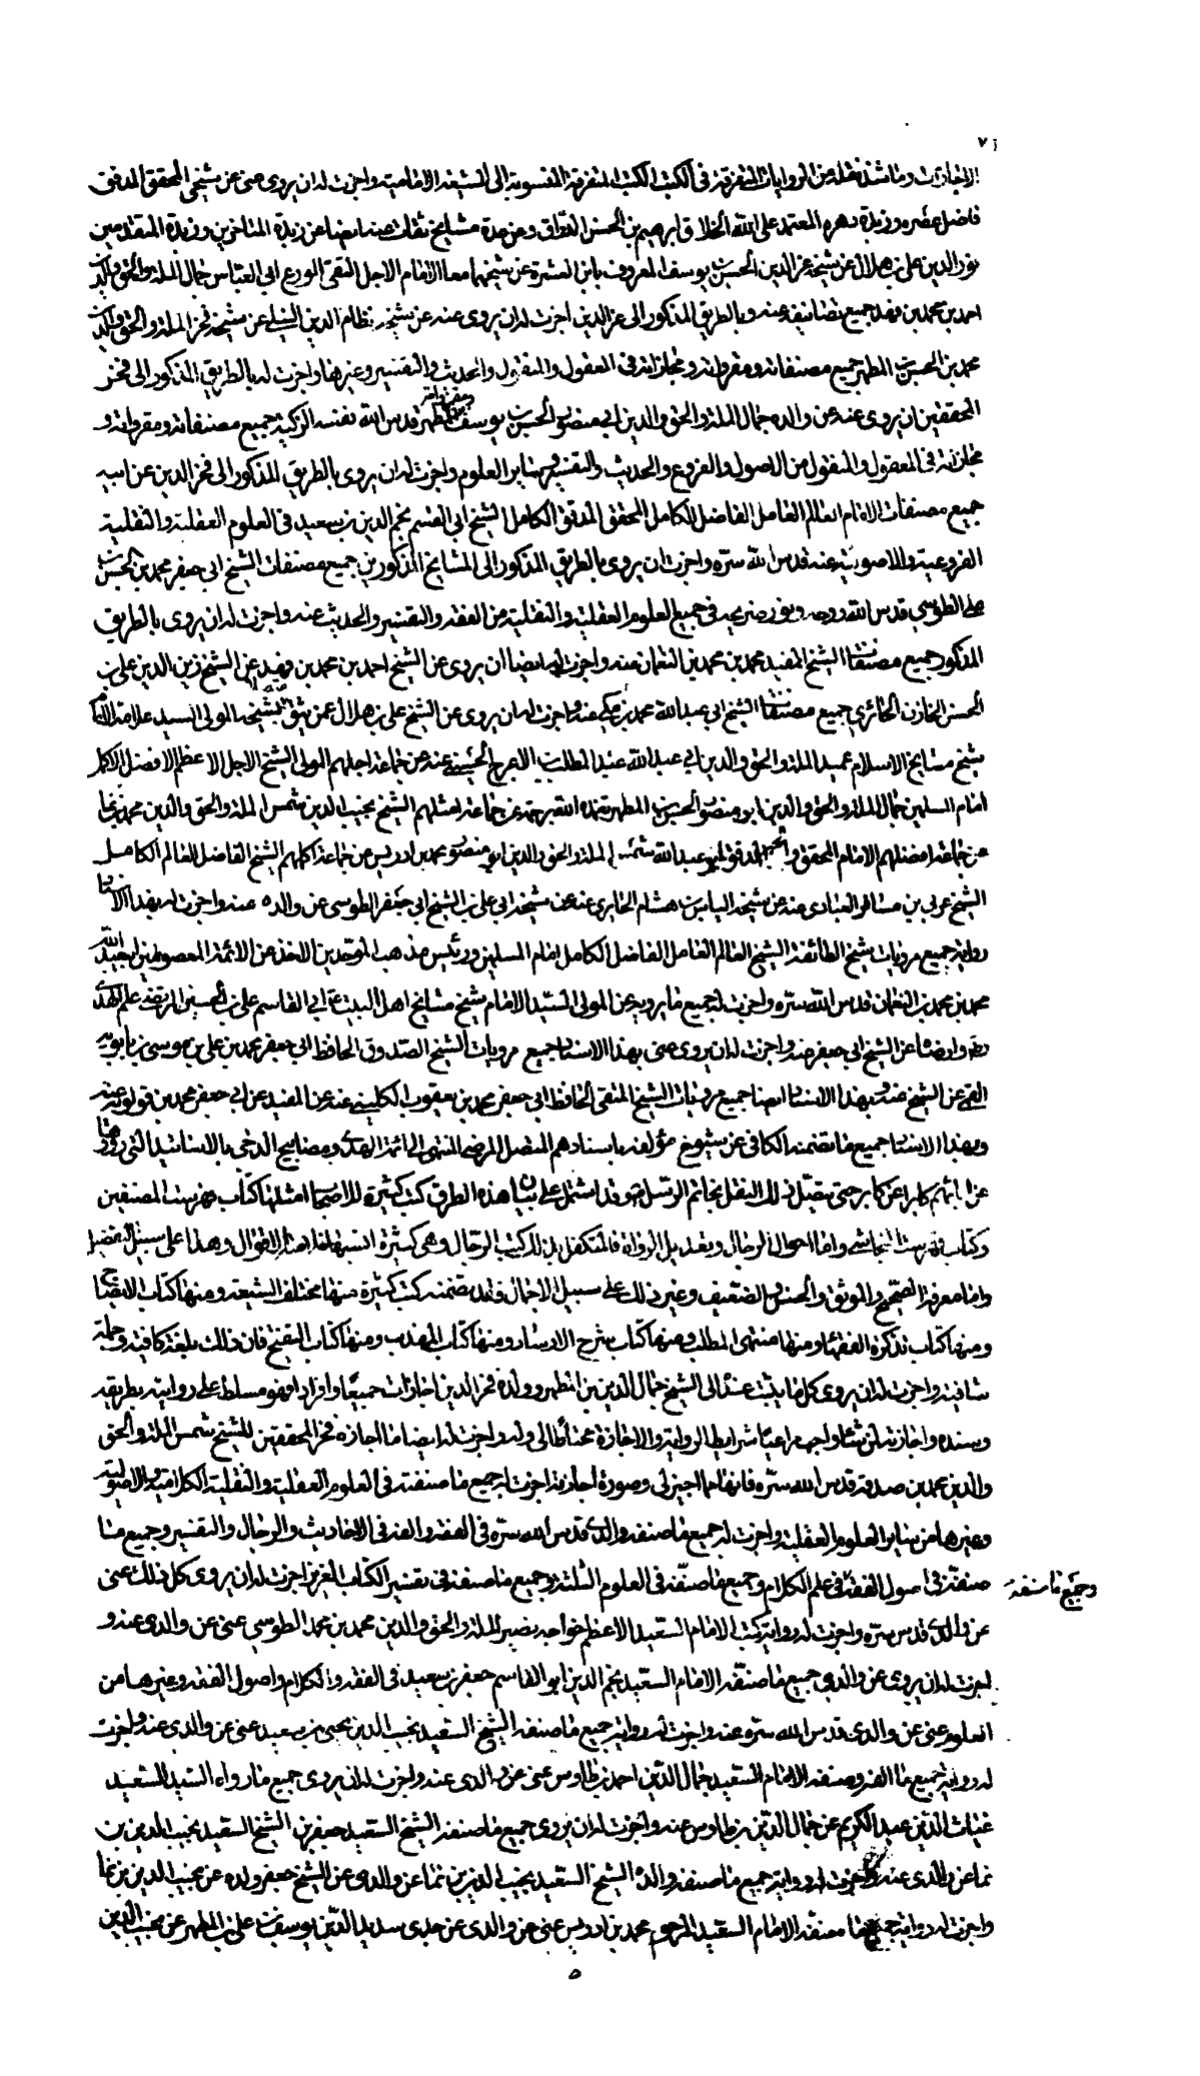 ٧٦
الاجازات وما شذ نقله من الروايات المتفرقة في الكتب المتفرقة المنسوبة الى الشيعة الامامية واجزت له ان يروي عني عن شيخي المحقق المدقق
فاضل عصره وزبدة دهره المعتمد على الله الخلاق ابرهيم بن الحسن الذراق وعن عدة مشايخ ثقات عنه ايضا عن زبدة المتاخرين وزبدة المتقدمين
نور الدين علي بن هلال عن شيخه عز الدين الحسن بن يوسف المعروف بابن العشرة عن شيخهما معا الامام الاجل التقي الورع ابي العباس جمال الملة والحق والدين
احمد بن محمد بن فهد جميع تصانيفه عنه وبالطريق المذكور الى عز الدين اجزت له ان يروي عنه عن شيخه نظام الدين النيلي عن شيخه فخر الملة والحق والدين
محمد بن الحسن بن المطهر جميع مصنفاته ومقرواته ومجازاته في المعقول والمنقول والحديث والتفسير وغيرها واجزت له بالطريق المذكور الى فخر
المحققين ان يروي عنه عن والده جمال الملة والحق والدين ابي منصور الحسن بن يوسف بن المطهر قدس الله نفسه الزكية جميع مصنفاته ومقرواته و
مجازاته في المعقول والمنقول من الاصول والفروع والحديث والتفسير وساير العلوم واجزت له ان يروي بالطريق المذكور الى فخر الدين عن ابيه
جميع مصنفات الامام العالم العامل الفاضل الكامل المحقق المدقق الكامل الشيخ ابي القسم نجم الدين بن سعيد في العلوم العقلية والنقلية
الفروعية والاصولية عنه قدس الله سره واجزت ان يروي بالطريق المذكور الى المشايخ المذكورين جميع مصنفات الشيخ ابي جعفر محمد بن الحسن بن
علي الطوسي قدس الله روحه ونور ضريحه في جميع العلوم العقلية والنقلية من الفقه والتفسير والحديث عنه واجزت له ان يروي بالطريق
المذكور جميع مصنفات الشيخ المفيد محمد بن محمد بن النعمان عنه واجزت له ايضا ان يروي عن الشيخ احمد بن محمد بن فهد عن الشيخ زين الدين علي بن
الحسن الخازن الحائري جميع مصنفات الشيخ ابي عبد الله محمد بن مكي عنه واجزت له ان يروي عن الشيخ علي بن هلال عمن يثق به بشيخه المولى السيد علامة الانام
شيخ مشايخ الاسلام عميد الملة والحق والدين ابي عبد الله عبد المطلب بن الاعرج الحسيني عنه عن جماعة اجلهم المولى الشيخ الاجل الاعظم الافضل الاكمل
امام المسلمين جمال الملة والحق والدين ابو منصور الحسن بن المطهر تغمده الله برحمته عن جماعة امثلهم الشيخ نجيب الدين شمس الملة والحق والدين محمد بن نما
عن جماعة افضلهم الامام المحقق والحبر المدقق ابو عبد الله شمس الملة والحق والدين ابو منصور محمد بن ادريس عن جماعة اكملهم الشيخ الفاضل العالم الكامل
الشيخ عربي بن مسافر العبادي عنه عن شيخه الياس بن هشام الحايري عنه عن شيخه ابي علي بن الشيخ ابي جعفر الطوسي عن والده عنه واجزت له بهذا الاسناد
رواية جميع مرويات شيخ الطائفة الشيخ العالم العامل الفاضل الكامل امام المسلمين ورئيس مذهب الموحدين الاخذ عن الائمة المعصومين ابي عبد الله
محمد بن محمد بن النعمان قدس الله سره واجزت له جميع ما يرويه عن المولى السيد الامام شيخ مشايخ اهل البيت ع ابي القاسم علي بن الحسين المرتضى علم الهدى
وايضا عن الشيخ ابي جعفر عنه واجزت له ان يروي عني بهذا الاسناد جميع مرويات الشيخ الصدوق الحافظ ابي جعفر محمد بن علي بن موسى بن بابويه
القمي عن الشيخ عنه وبهذا الاسناد ايضا جميع مرويات الشيخ المتقي الحافظ ابي جعفر محمد بن يعقوب الكليني عنه عن المفيد عن ابي جعفر محمد بن قولويه عنه
وبهذا الاسناد جميع ما تضمنه الكافي عن شيوخ مؤلفه باسنادهم المتصل المرضي المنتهى الى ائمة الهدى ومصابيح الدجى بالاسانيد التي رووها
عن ابائهم كابرا عن كابر حتى يتصل ذلك النقل بخاتم الرسل وقد اشتمل على بيان هذه الطرق كتب كثيرة للاصحاب امثلها كتاب فهرست المصنفين
وكتاب فهرست النجاشي واما احوال الرجال وتعديل الرواة فالمتكفل بذلك كتب الرجال وهي كثيرة وهذا على سبيل التفصيل
واما معرفة الصحيح والموثق والحسن والضعيف وغير ذلك على سبيل الاجمال فقد تضمنه كتب كثيرة منها مختلف الشيعة ومنها كتاب الايضاح
ومنها كتاب تذكرة الفقهاء ومنها منتهى المطلب ومنها كتاب شرح الارشاد ومنها كتاب المهذب ومنها كتاب التنقيح فان ذلك بلغة كافية وجملة
شافية واجزت له ان يروي كل ما يثبت عنده الى الشيخ جمال الدين بن المطهر وولده فخر الدين اجازات جميعا وافرادا وهو مسلط على روايته بطريقه
وسنده واجازته لمن شاء واحب مراعيا شرايط الرواية والاجازة محتاطا لي وله واجزت له ايضا ما اجازه فخر المحققين للشيخ شمس الملة والحق
والدين محمد بن صدقة قدس الله سره فانها مما اجيز لي وصورة اجازته اجزت له جميع ما صنفته في العلوم العقلية والنقلية الكلامية والاصولية
وغيرها من ساير العلوم العقلية واجزت له جميع ما صنفه والدي قدس الله سره في الفقه والفه في الاحاديث والرجال والتفسير وجميع ما
صنفه في اصول الفقه في علم الكلام وجميع ما صنفه في العلوم الثلثة وجميع ما صنفه في تفسير الكتاب العزيز اجزت له ان يروي كل ذلك عني
وجميع ما صنفه
عن والدي قدس سره واجزت له رواية كتب الامام السعيد الاعظم خواجه نصير الملة والحق والدين محمد بن محمد الطوسي عني عن والدي عنه و
اجزت له ان يروي عن والدي جميع ما صنفه الامام السعيد نجم الدين ابو القاسم جعفر بن سعيد في الفقه والكلام واصول الفقه وغيرها من
العلوم عني عن والدي قدس الله سره عنه واجزت له رواية جميع ما صنفه الشيخ السعيد نجيب الدين يحيى بن سعيد عني عن والدي عنه واجزت
له رواية جميع ما الفه وصنفه الامام السعيد جمال الدين احمد بن طاوس عني عن والدي عنه واجزت له ان يروي جميع ما رواه السيد السعيد
غياث الدين عبد الكريم عن جمال الدين بن طاوس عنه واجزت له ان يروي جميع ما صنفه الشيخ السعيد جعفر بن الشيخ السعيد نجيب الدين بن
نما عن والدي عنه واجزت له رواية جميع ما صنفه والده الشيخ السعيد نجيب الدين بن نما عن والدي عن الشيخ جعفر ولده عن نجيب الدين بن نما
واجزت له رواية جميع ما صنفه الامام السعيد المرحوم محمد بن ادريس عني عن والدي عن جدي سديد الدين يوسف بن علي بن المطهر عن نجيب الدين